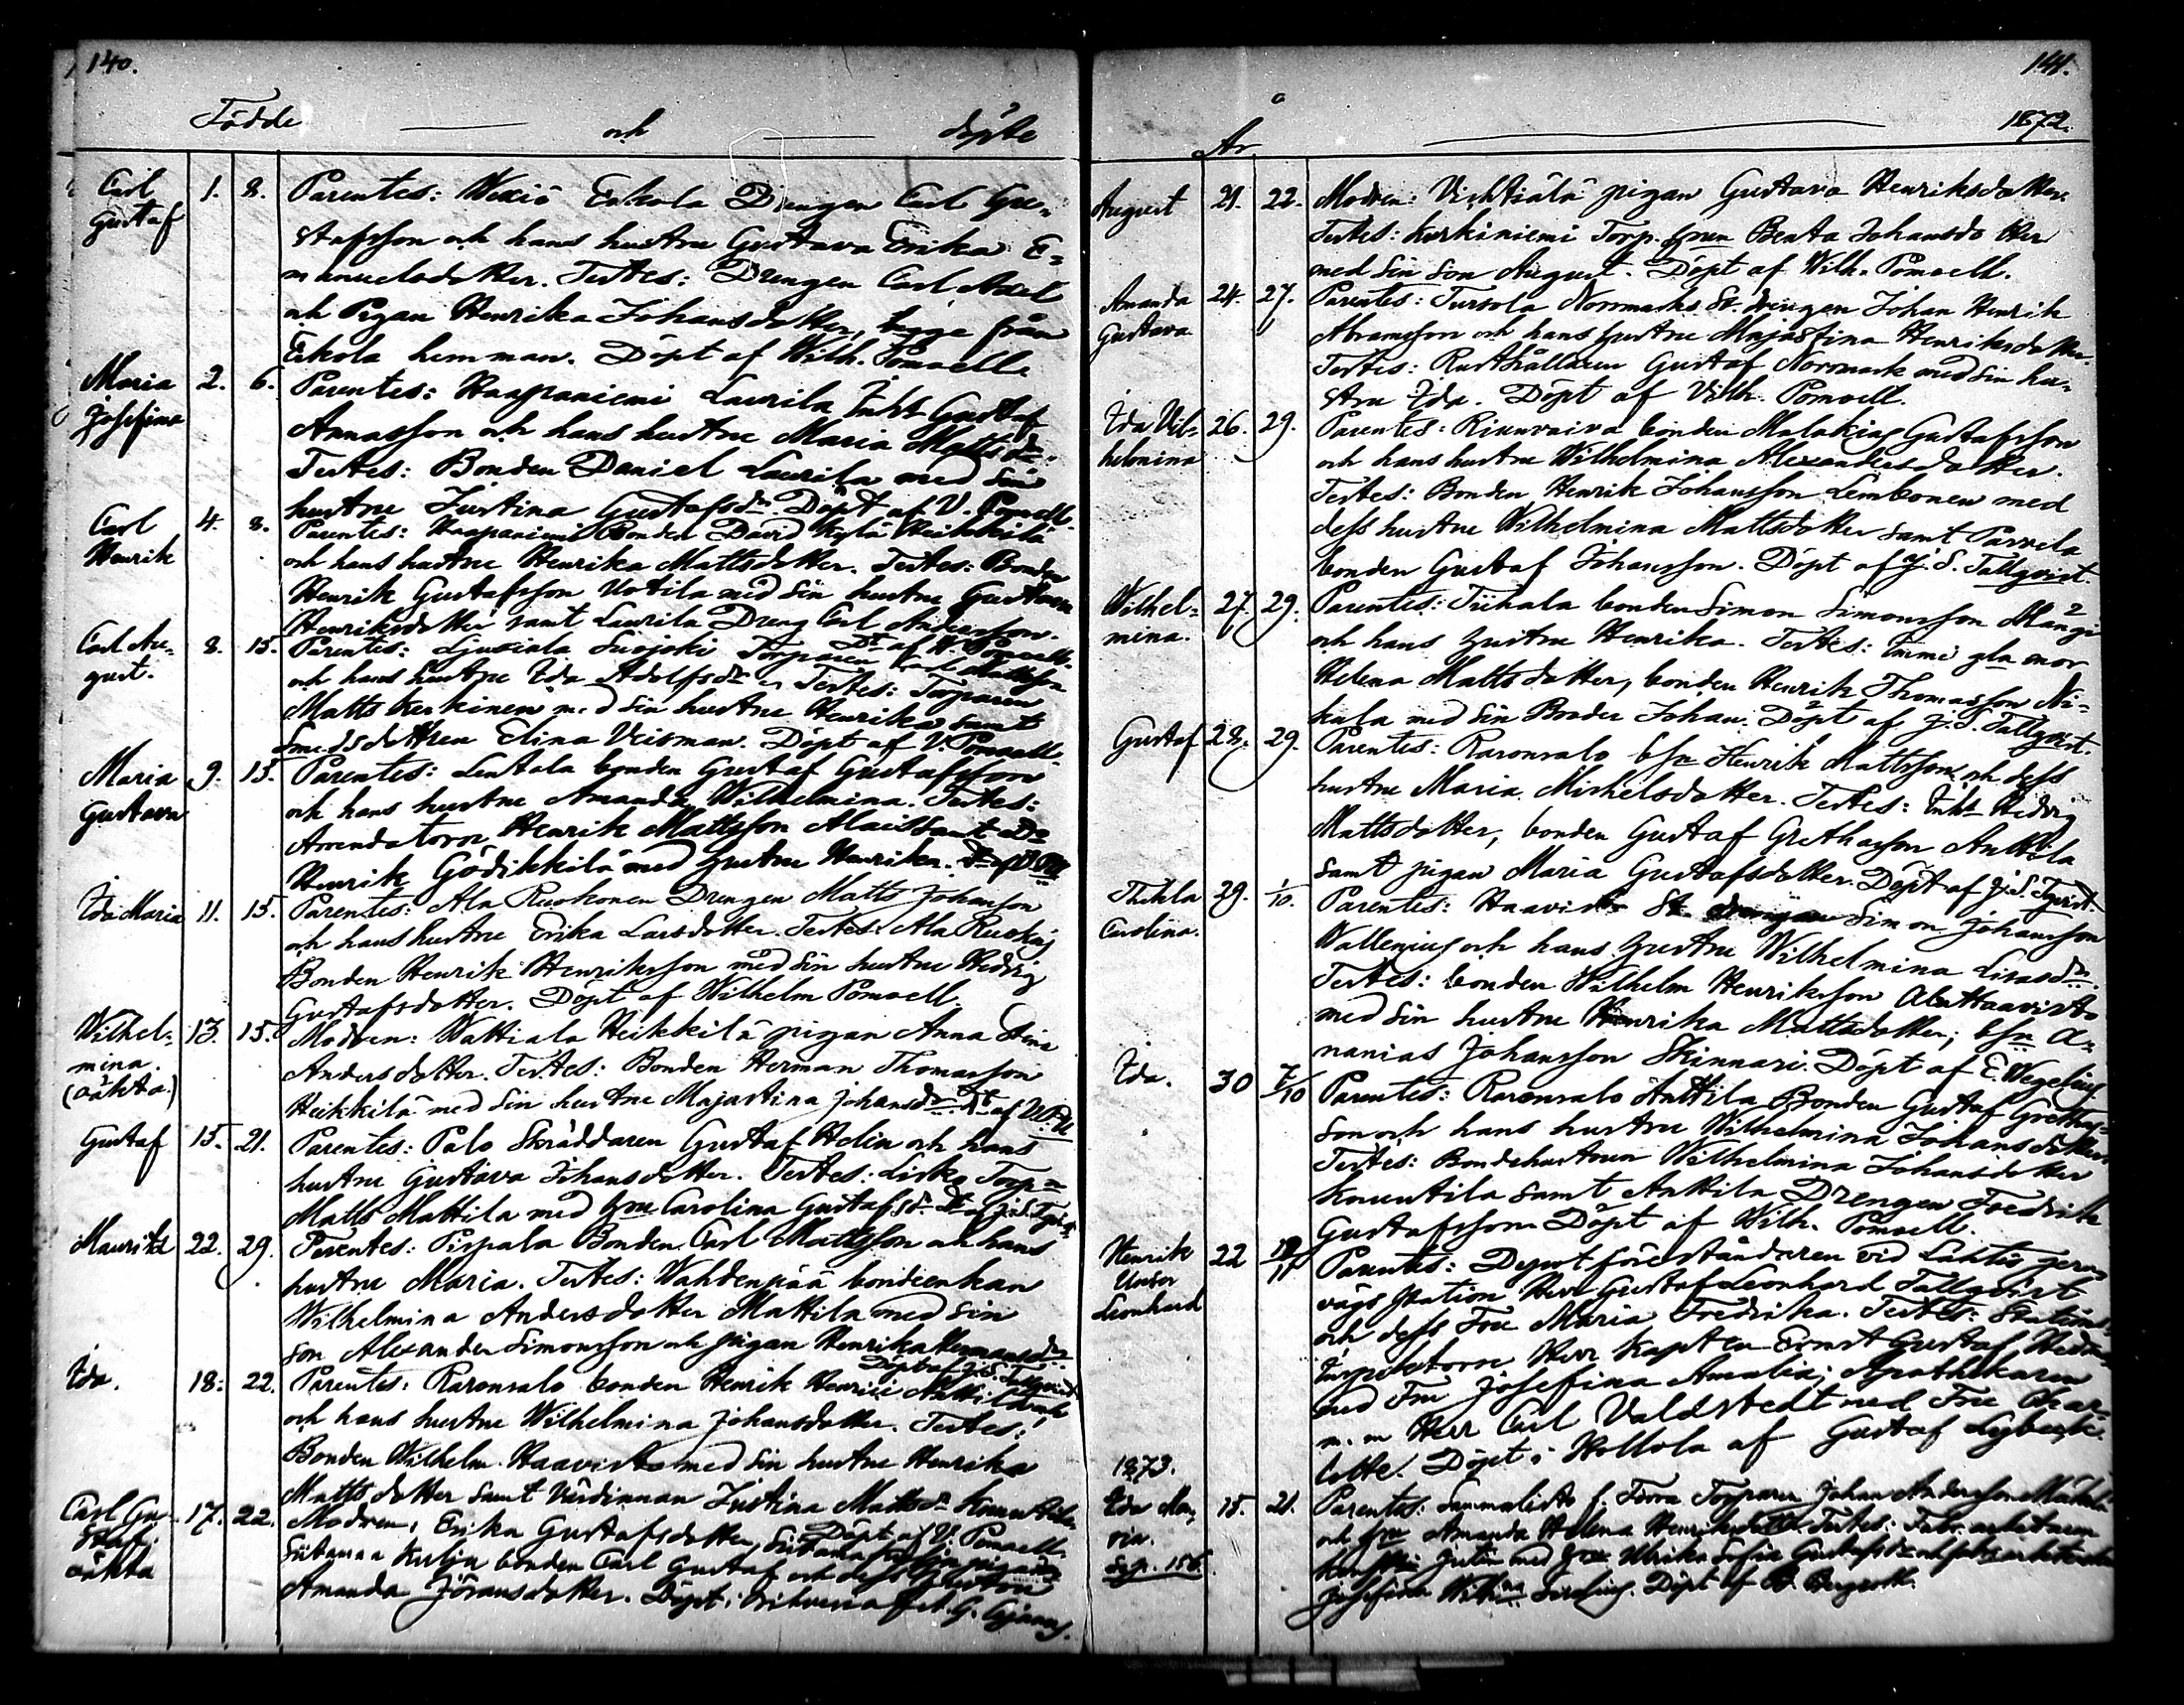 140.
Födde och döpte
Carl Gustaf 1. 8. Parentes: Wexiö Eskola Drengen Carl Gu-
stafsson och hans hustru Gustava Erika E-
manuelsdotter. Testes: Drengen Carl Axel
och Pigan Henrika Johansdotter, begge från
Eskola hemman. Döpt af Wilh. Pomoell.
Maria Josefina 2. 6. Parentes: Haapaniemi Laurila Inhs Gustaf
Annasson och hans hustru Maria Mattsdr
Testes: Bonden Daniel Laurila med sin
hustru Justina Gustafsdr. Döpt af V. Pomoell.
Carl Henrik 4. 8. Parentes: Haapaniemi Bonden David Kylä Heikkilä
och hans hustru Henrika Mattsdotter. Testes: Bonden
Henrik Gustafsson Uotila med sin hustru Gustava
Henriksdotter samt Laurila Dreng Carl Andersson.
Dt af W. Pomoell.
Carl Au-gust. 8. 15. Parentes: Ljusiala Suojoki Torparen Carl Mattsson
och hans hustru Ida Adolfsdr. Testes: Torparen
Matts Kerkinen med sin hustru Henrika samt
Smedsdottren Elina Veisman. Döpt af V. Pomoell.
Maria Gustava 9. 15. Parentes: Lentala bonden Gustaf Gustafsson
och hans hustru Amanda Wilhelmina. Testes:
Arrendatorn Henrik Mattsson Alais samt
Henrik Gödikkilä med hustru Henrika.
Ida Maria 11. 15. Parentes: Ala Ruokonen Drengen Matts Johansson
och hans hustru Erika Larsdotter. Testes: Ala
Bonden Henrik Henriksson med sin hustru Hedvig
Gustafsdotter. Döpt af Wilhelm Pomoell.
Wilhel-mina. (oäkta.) 13. 15. Modren: Wattiala Heikkilä pigan Anna Stina
Andersdotter. Testes: Bonden Herman Thomasson
Heikkilä med sin hustru Majastina Johansdr.
Gustaf 15. 21. Parentes: Palo Skräddaren Gustaf Helin och hans
hustru Gustava Johansdotter. Testes: Torp
Matts Mattila med hru Carolina Gustafsdr.
Mauritz 22. 29. Parentes: Pispala Bonden Carl Mattsson och hans
hustru Maria. Testes: Wahdenpää bondeenkan
Wilhelmina Andersdotter Mattila med sin
son Alexander Simonsson och pigan Henrika Hermansdr
Döpt af J. S. Tallqvist
Ida. 18. 22. Parentes: Raronsalo bonden Henrik Henriksson
och hans hustru Wilhelmina Johansdotter. Testes:
Bonden Wilhelm Haavisto med sin hustru Henrika
Mattsdotter samt Värdinnan Justina Mattsdr
Döpt af V. Pomoell.
Carl Gu-staf, oäkta 17. 22. Modren, Erika Gustafsdotter,
bonden Carl Gustaf och
Amanda Jöransdotter. Döpt i
141.
År 1872.
August 21. 22. Modren: Vichtiälä pigan Gustava Henriksdotter.
Testes: Kurkiniemi Torp. hrun Benta Johansdotter
med sin son August. Döpt af Wilh. Pomoell.
Amanda Gustava 24. 27. Parentes: Tursola Norrmarks St. drengen Johan Henrik
Abramsson och hans hustru Majastina Henriksdotter.
Testes: Rusthållaren Gustaf Norrmark med sin hu-
stru Ida. Döpt af Vilh. Pomoell.
Ida Vil-helmina 26. 29. Parentes: Riunvaiva bonden Malakias Gustafsson
och hans hustru Wilhelmina Alexandersdotter.
Testes: Bonden Henrik Johansson Lembonen med
dess hustru Wilhelmina Mattsdotter samt Parvela
bonden Gustaf Johansson. Döpt af J. S. Tallqvist.
Wilhel-mina. 27. 29. Parentes: Tiihala bonden Simon Simonsson
och hans hustru Henrika. Testes: gla mor
Helena Mattsdotter, bonden Henrik Thomasson Ni-
kula med sin Broder Johan. Döpt af J. S. Tallqvist.
Gustaf 28. 29. Parentes: Raronsalo bsn Henrik Mattsson och dess
hustru Maria Michelsdotter. Testes: Inhs Hedvig
Mattsdotter, bonden Gustaf Grethasson Anttila
samt pigan Maria Gustafsdotter. Döpt af J. S. Tqvist.
Thekla Carolina. 29. 1/10. Parentes: Haavisto St. drengen Simon Johansson
Wallenius och hans hustru Wilhelmina Lisasdr
Testes: bonden Wilhelm Henriksson Ala Haavisto
med sin hustru Henrika Mattsdotter; bsn A-
nanias Johansson Skinnari. Döpt af E. Wegelius
Ida. 30 7/10 Parentes: Raronsalo Anttila Bonden Gustaf Grethas-
son och hans hustru Wilhelmina Johansdotter
Testes: Bondehustrun Wilhelmina Johansdotter
Konuntila samt Anttila Drengen Fredrik
Gustafsson. Döpt af Wilh. Pomoell.
Henrik Unior Leonhard 22 Parentes: föreståndaren vid Lahtis jern-
vägs station Herr Gustaf Leonhard Tallqvist
och dess Fru Maria Fredrika. Testes: Stations-
Inspektorn Herr Kapten Ernst Gustaf
med Fru Josefina Amalia; Apothekaren
m. m Herr Carl Valdstedt med Fru Char-
lotte. Döpt i Hollola af Gustaf Lybeck.
1873.
Ida Maria. 15. 21. Parentes: Sammalisto f. Torparen Johan Andersson
och hru Amanda Helena Henriksdotter. Testes: Fabr. arbetaren
med hru Ulrika Sofia Gustafsdr och
Josefina Döpt af